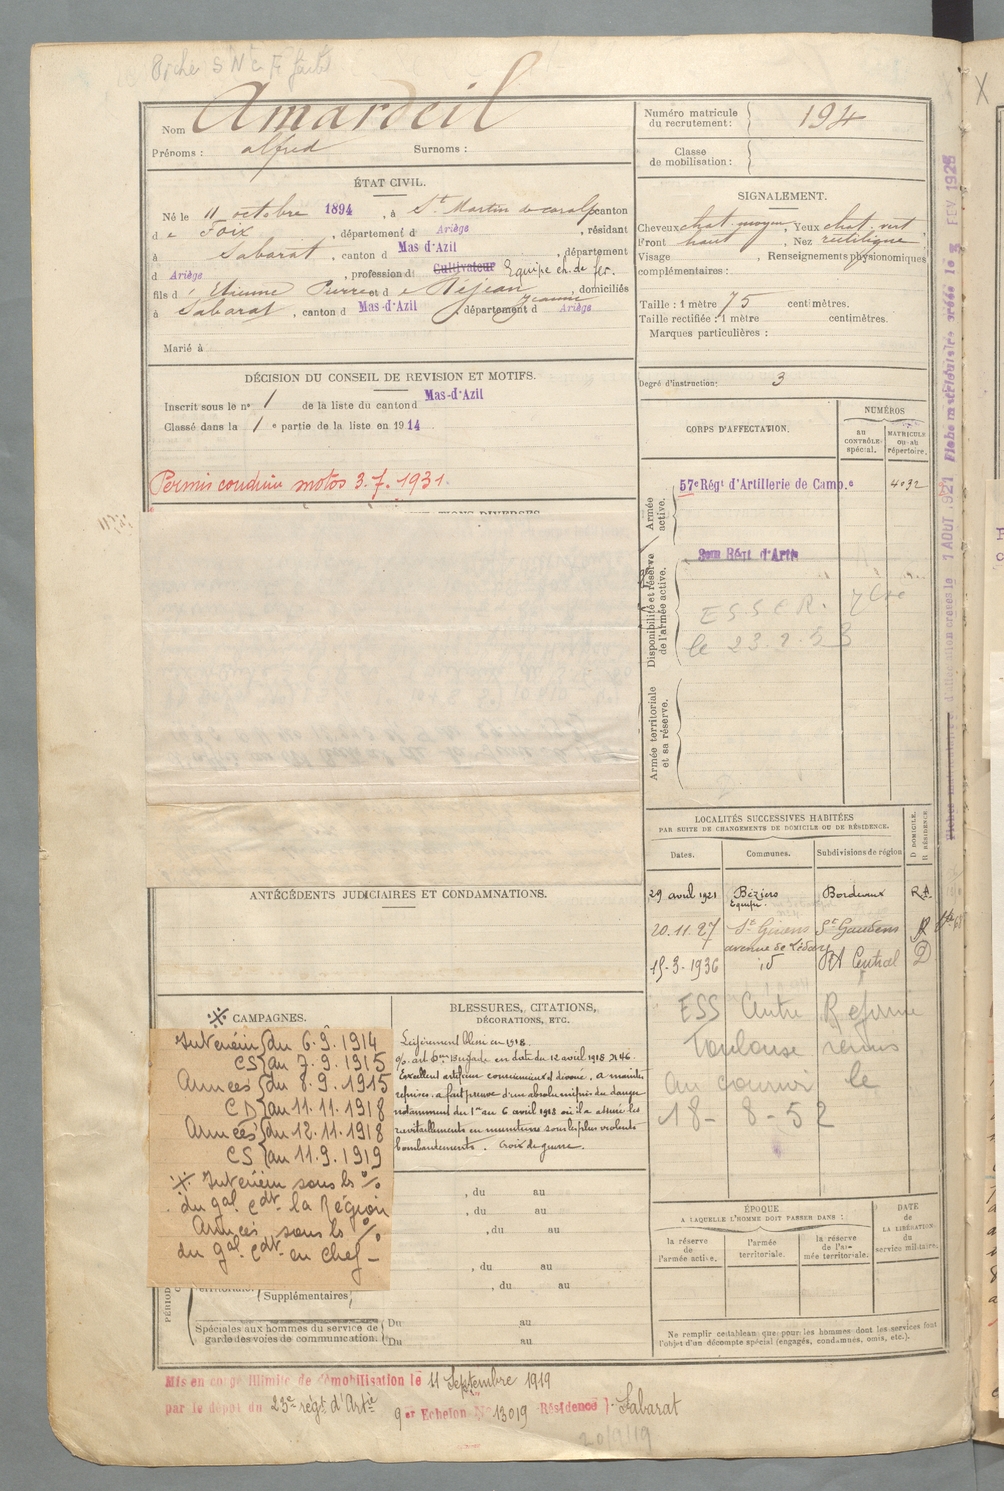 Fiche S N C F
Nom Amardeil
Prénoms : alfred Surnoms :
Numéro matricule du recrutement : 194
Classe de mobilisation :
ÉTAT CIVIL.
Né le 11 octobre 1894, à St Martin de caralp canton
de Foix, département d Ariège, résidant
à Sabarat, canton d Mas d'Azil, département
d Ariège, profession d Cultivateur Equipe ch. de fer.
fils d' Etienne Pierre et d e Déjean Jeanne, domiciliés
à Sabarat, canton d Mas-d'Azil, département d Ariège
Marié à
SIGNALEMENT.
Cheveux chat. moyen, Yeux chat. vert,
Front haut, Nez rectiligne
Visage , Renseignements physionomiques
complémentaires :
Taille : 1 mètre 75 centimètres.
Taille rectifiée : 1 mètre centimètres.
Marques particulières :
Degré d'instruction : 3
DÉCISION DU CONSEIL DE REVISION ET MOTIFS.
Inscrit sous le n° 1 de la liste du canton d Mas-d'Azil
Classé dans la 1e partie de la liste en 1914
Permis conduire motos 3.7.1931.
CORPS D'AFFECTATION.
NUMÉROS
AU CONTRÔLE spécial.
MATRICULE ou au répertoire.
Armée active.
57e Régt d'Artillerie de Camp.e 4032
Disponibilité et réserve de l'armée active.
Régt d'Artie
E S S E R.
le 23.2.53
Armée territoriale et sa réserve.
LOCALITÉS SUCCESSIVES HABITÉES
PAR SUITE DE CHANGEMENTS DE DOMICILE OU DE RÉSIDENCE.
Dates. Communes. Subdivisions de région D DOMICILE. R RÉSIDENCE
29 avril 1921 Béziers Bordeaux
Equipe.
20.11.27 St Girons St Gaudens R
avenue de
15-3-1936 id RA Central D
ESS Autre
Toulouse remis
au courrier le
18-8-52
ANTÉCÉDENTS JUDICIAIRES ET CONDAMNATIONS.
CAMPAGNES.
Intérieur du 6.9.1914
CS au 7.9.1915
Armées du 8.9.1915
CD au 11.11.1918
Armées du 12.11.1918
CS au 11.9.1919
Intérieur sous les o/
du gal Cdt la Région
Armées sous les o/
du gal Cdt en chef -
BLESSURES, CITATIONS,
DÉCORATIONS, ETC.
Légèrement blessé en 1918.
o/. art. 6me Brigade en date du 12 avril 1918 N 46.
Excellent artificier consciencieux et dévoué, a maintes
reprises a fait preuve d'un absolu mépris du danger
notamment du 1er au 6 avril 1918 où il a assuré les
ravitaillements en munitions sous les plus violents
bombardements. Croix de guerre.
, du au
, du au
, du au
, du au
, du au
Supplémentaires
Spéciales aux hommes du service de garde des voies de communication. Du au
Du au
ÉPOQUE
A LAQUELLE L'HOMME DOIT PASSER DANS :
la réserve de l'armée active. l'armée territoriale. la réserve de l'armée territoriale.
DATE de LA LIBÉRATION du service militaire.
Ne remplir ce tableau que pour les hommes dont les services font
l'objet d'un décompte spécial (engagés, condamnés, omis, etc.).
Mis en congé illimité de démobilisation le 11 Septembre 1919
par le dépôt du 23e régt d'Artie 9e Echelon N° 13019 Résidence Sabarat
20/9/19